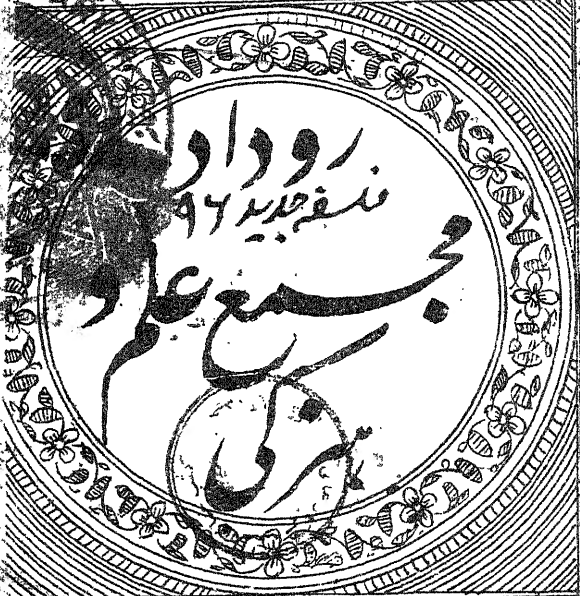 روداد
فلسفہ جدید ۹۶
مجمع علم و
ہنر کی